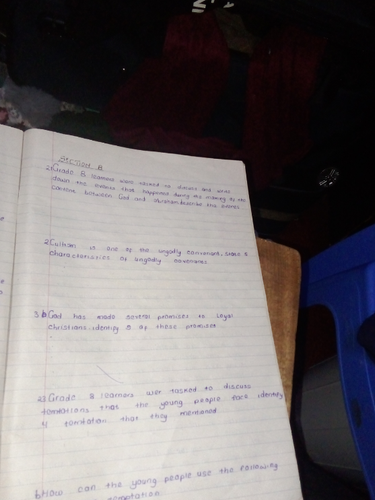 Section B
2) Grade 8 learners were tasked to discuss and write
down the events that happened during the making of the
covenant between God and Abraham describe the events
2. Cultism is one of the ungodly convenant, state 8
characteristics of ungodly movements
3 b God has made several promises to loyal
christians, identify 8 of these promises
a) Grade 8 learners were tasked to discuss
temtations that the young people face identify
4 temtation that they mentioned
b) How can the young people use the following
temptation